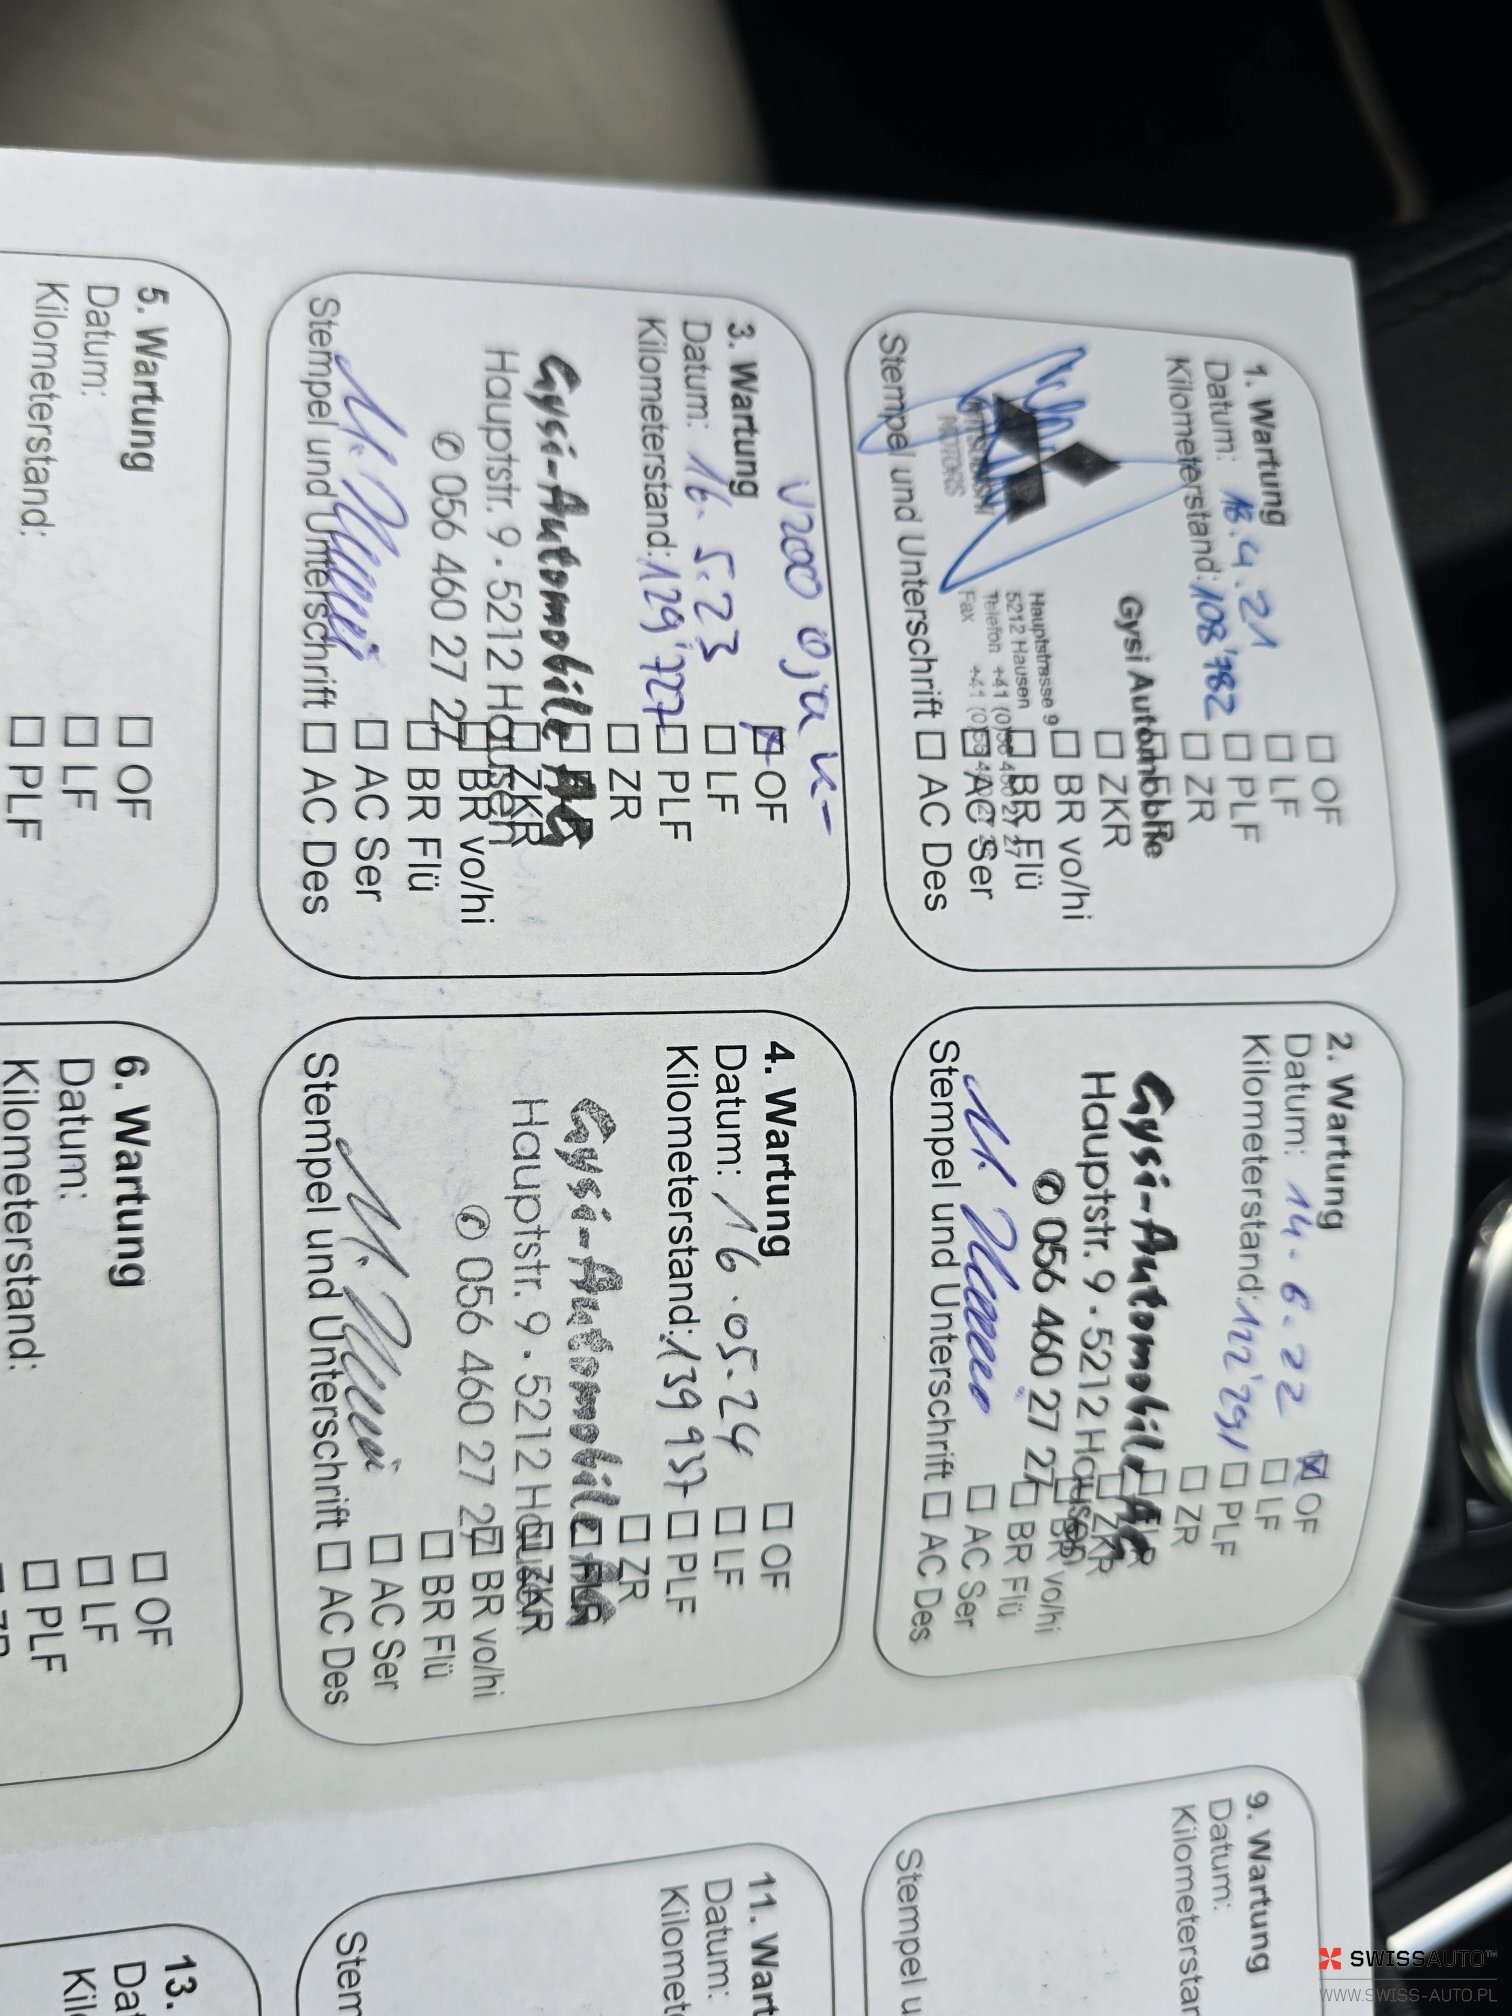 1. Wartung
Datum: 18.4.21
Kilometerstand: 108'782
Gysi Automobile
MITSUBISHI
MOTORS
Hauptstrasse 9
5212 Hausen
Telefon +41 (0)56 460 27 27
Fax +41 (0)56
Stempel und Unterschrift
☐ OF
☐ LF
☐ PLF
☐ ZR
☐ ZKR
☐ BR vo/hi
☐ BR Flü
☐ AC Ser
☐ AC Des
2. Wartung
Datum: 14.6.22
Kilometerstand: 122'291
Gysi-Automobile AG
Hauptstr. 9 - 5212 Hausen
✆ 056 460 27 27
Stempel und Unterschrift
☒ OF
☐ LF
☐ PLF
☐ ZR
☐ FLR
☐ ZKR
☐ BR vo/hi
☐ BR Flü
☐ AC Ser
☐ AC Des
3. Wartung
Datum: 16.5.23
Kilometerstand: 129'727
Gysi-Automobile AG
Hauptstr. 9 - 5212 Hausen
✆ 056 460 27 27
Stempel und Unterschrift
☒ OF
☐ LF
☐ PLF
☐ ZR
☐ ZKR
☐ BR vo/hi
☐ BR Flü
☐ AC Ser
☐ AC Des
4. Wartung
Datum: 16.05.24
Kilometerstand: 139 937
Gysi-Automobile AG
Hauptstr. 9 - 5212 Hausen
✆ 056 460 27 27
Stempel und Unterschrift
☐ OF
☐ LF
☐ PLF
☐ ZR
☐ FLR
☐ ZKR
☐ BR vo/hi
☐ BR Flü
☐ AC Ser
☐ AC Des
5. Wartung
Datum:
Kilometerstand:
☐ OF
☐ LF
☐ PLF
6. Wartung
Datum:
Kilometerstand:
☐ OF
☐ LF
☐ PLF
9. Wartung
Datum:
Kilometerstan
Stempel u
11. Wart
Datum:
Kilomete
Stem
13.
Dat
Kil
SWISSAUTO™
WWW.SWISS-AUTO.PL